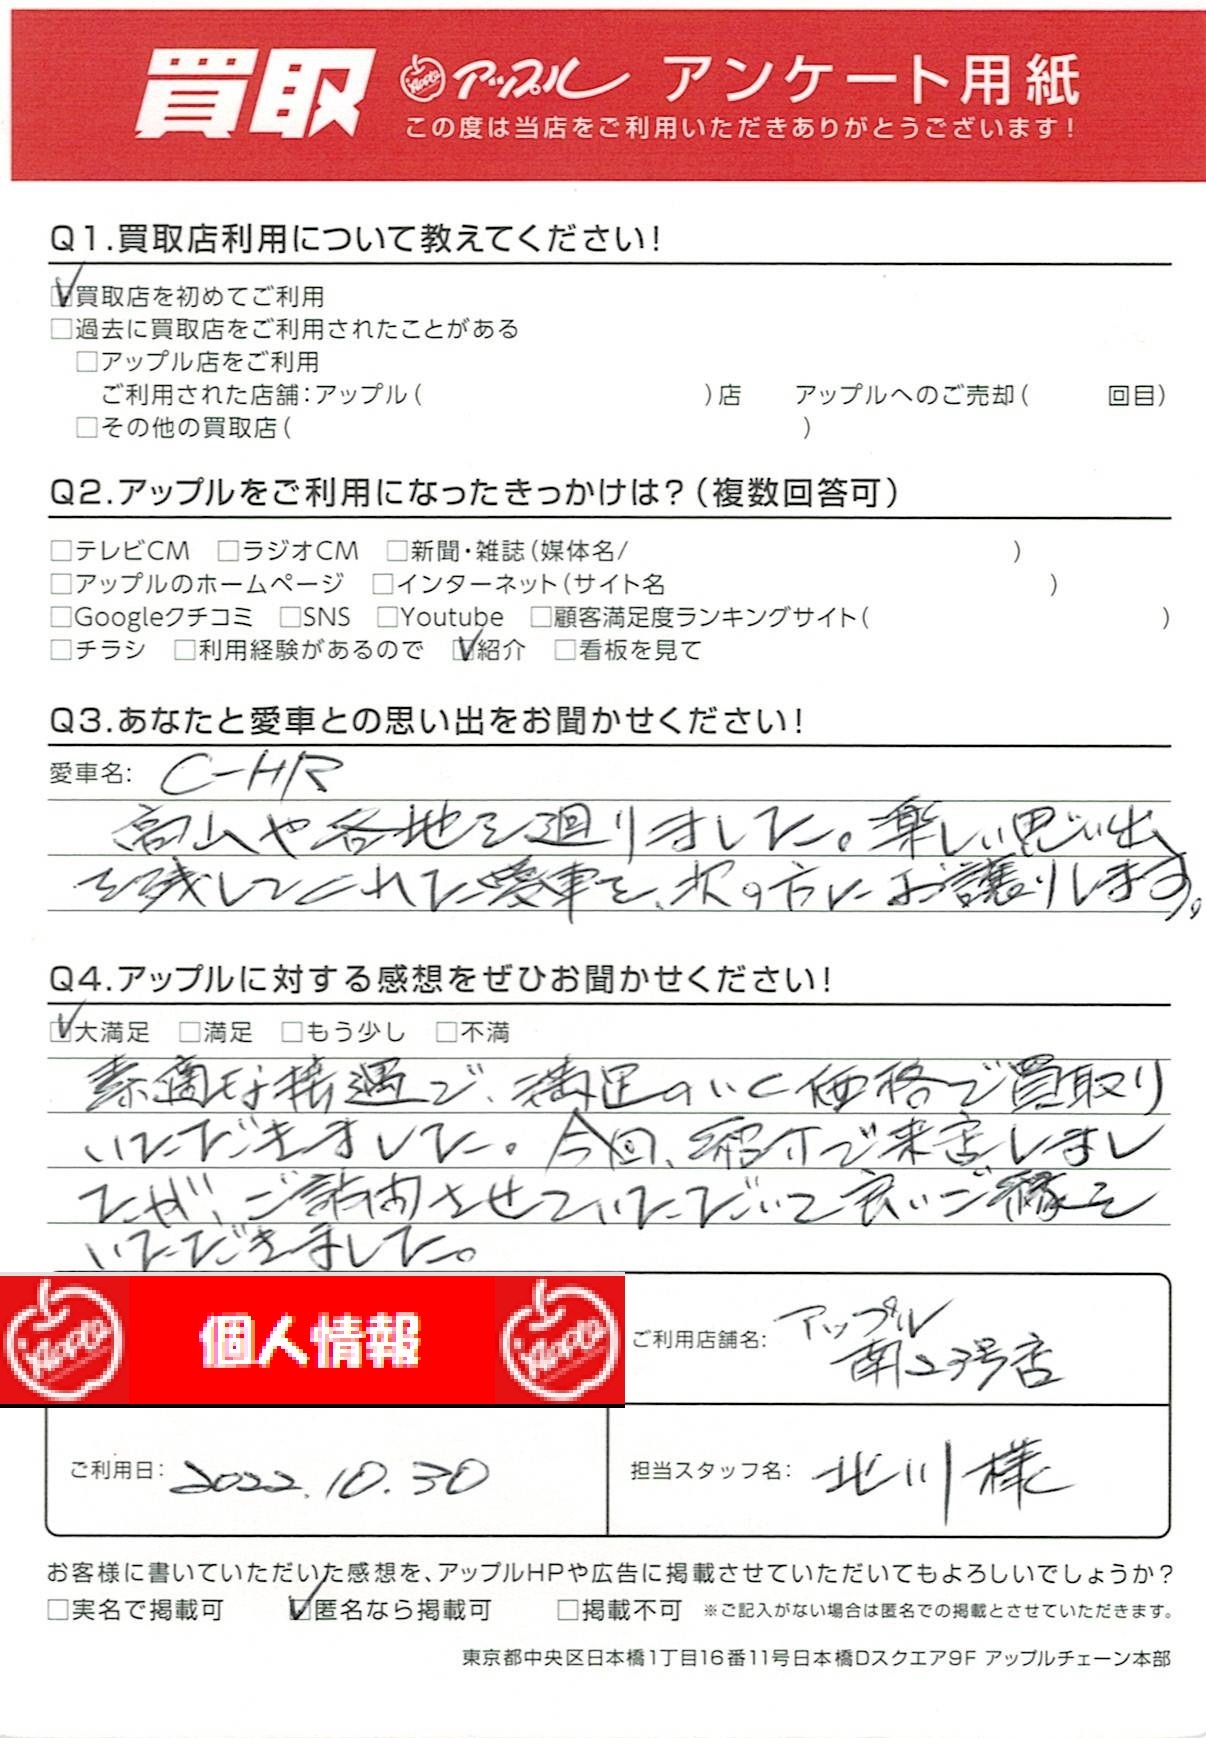 買取 Apple アップル アンケート用紙
この度は当店をご利用いただきありがとうございます！
Q1.買取店利用について教えてください！
☑買取店を初めてご利用
□過去に買取店をご利用されたことがある
□アップル店をご利用
ご利用された店舗：アップル（ ）店 アップルへのご売却（ 回目）
□その他の買取店（ ）
Q2.アップルをご利用になったきっかけは？（複数回答可）
□テレビCM □ラジオCM □新聞・雑誌（媒体名/ ）
□アップルのホームページ □インターネット（サイト名 ）
□Googleクチコミ □SNS □Youtube □顧客満足度ランキングサイト（ ）
□チラシ □利用経験があるので ☑紹介 □看板を見て
Q3.あなたと愛車との思い出をお聞かせください！
愛車名： C-HR
高山や各地を廻りました。楽しい思い出
を残してくれた愛車を、次の方にお譲りします。
Q4.アップルに対する感想をぜひお聞かせください！
☑大満足 □満足 □もう少し □不満
素適な接遇で、満足のいく価格で買取り
いただきました。今回、紹介で来店しまし
たが、ご訪問させていただいて良いご縁を
いただきました。
Apple 個人情報 Apple
ご利用店舗名： アップル
南23号店
ご利用日： 2022.10.30
担当スタッフ名： 北川様
お客様に書いていただいた感想を、アップルHPや広告に掲載させていただいてもよろしいでしょうか？
□実名で掲載可 ☑匿名なら掲載可 □掲載不可 ※ご記入がない場合は匿名での掲載とさせていただきます。
東京都中央区日本橋1丁目16番11号日本橋Dスクエア9F アップルチェーン本部